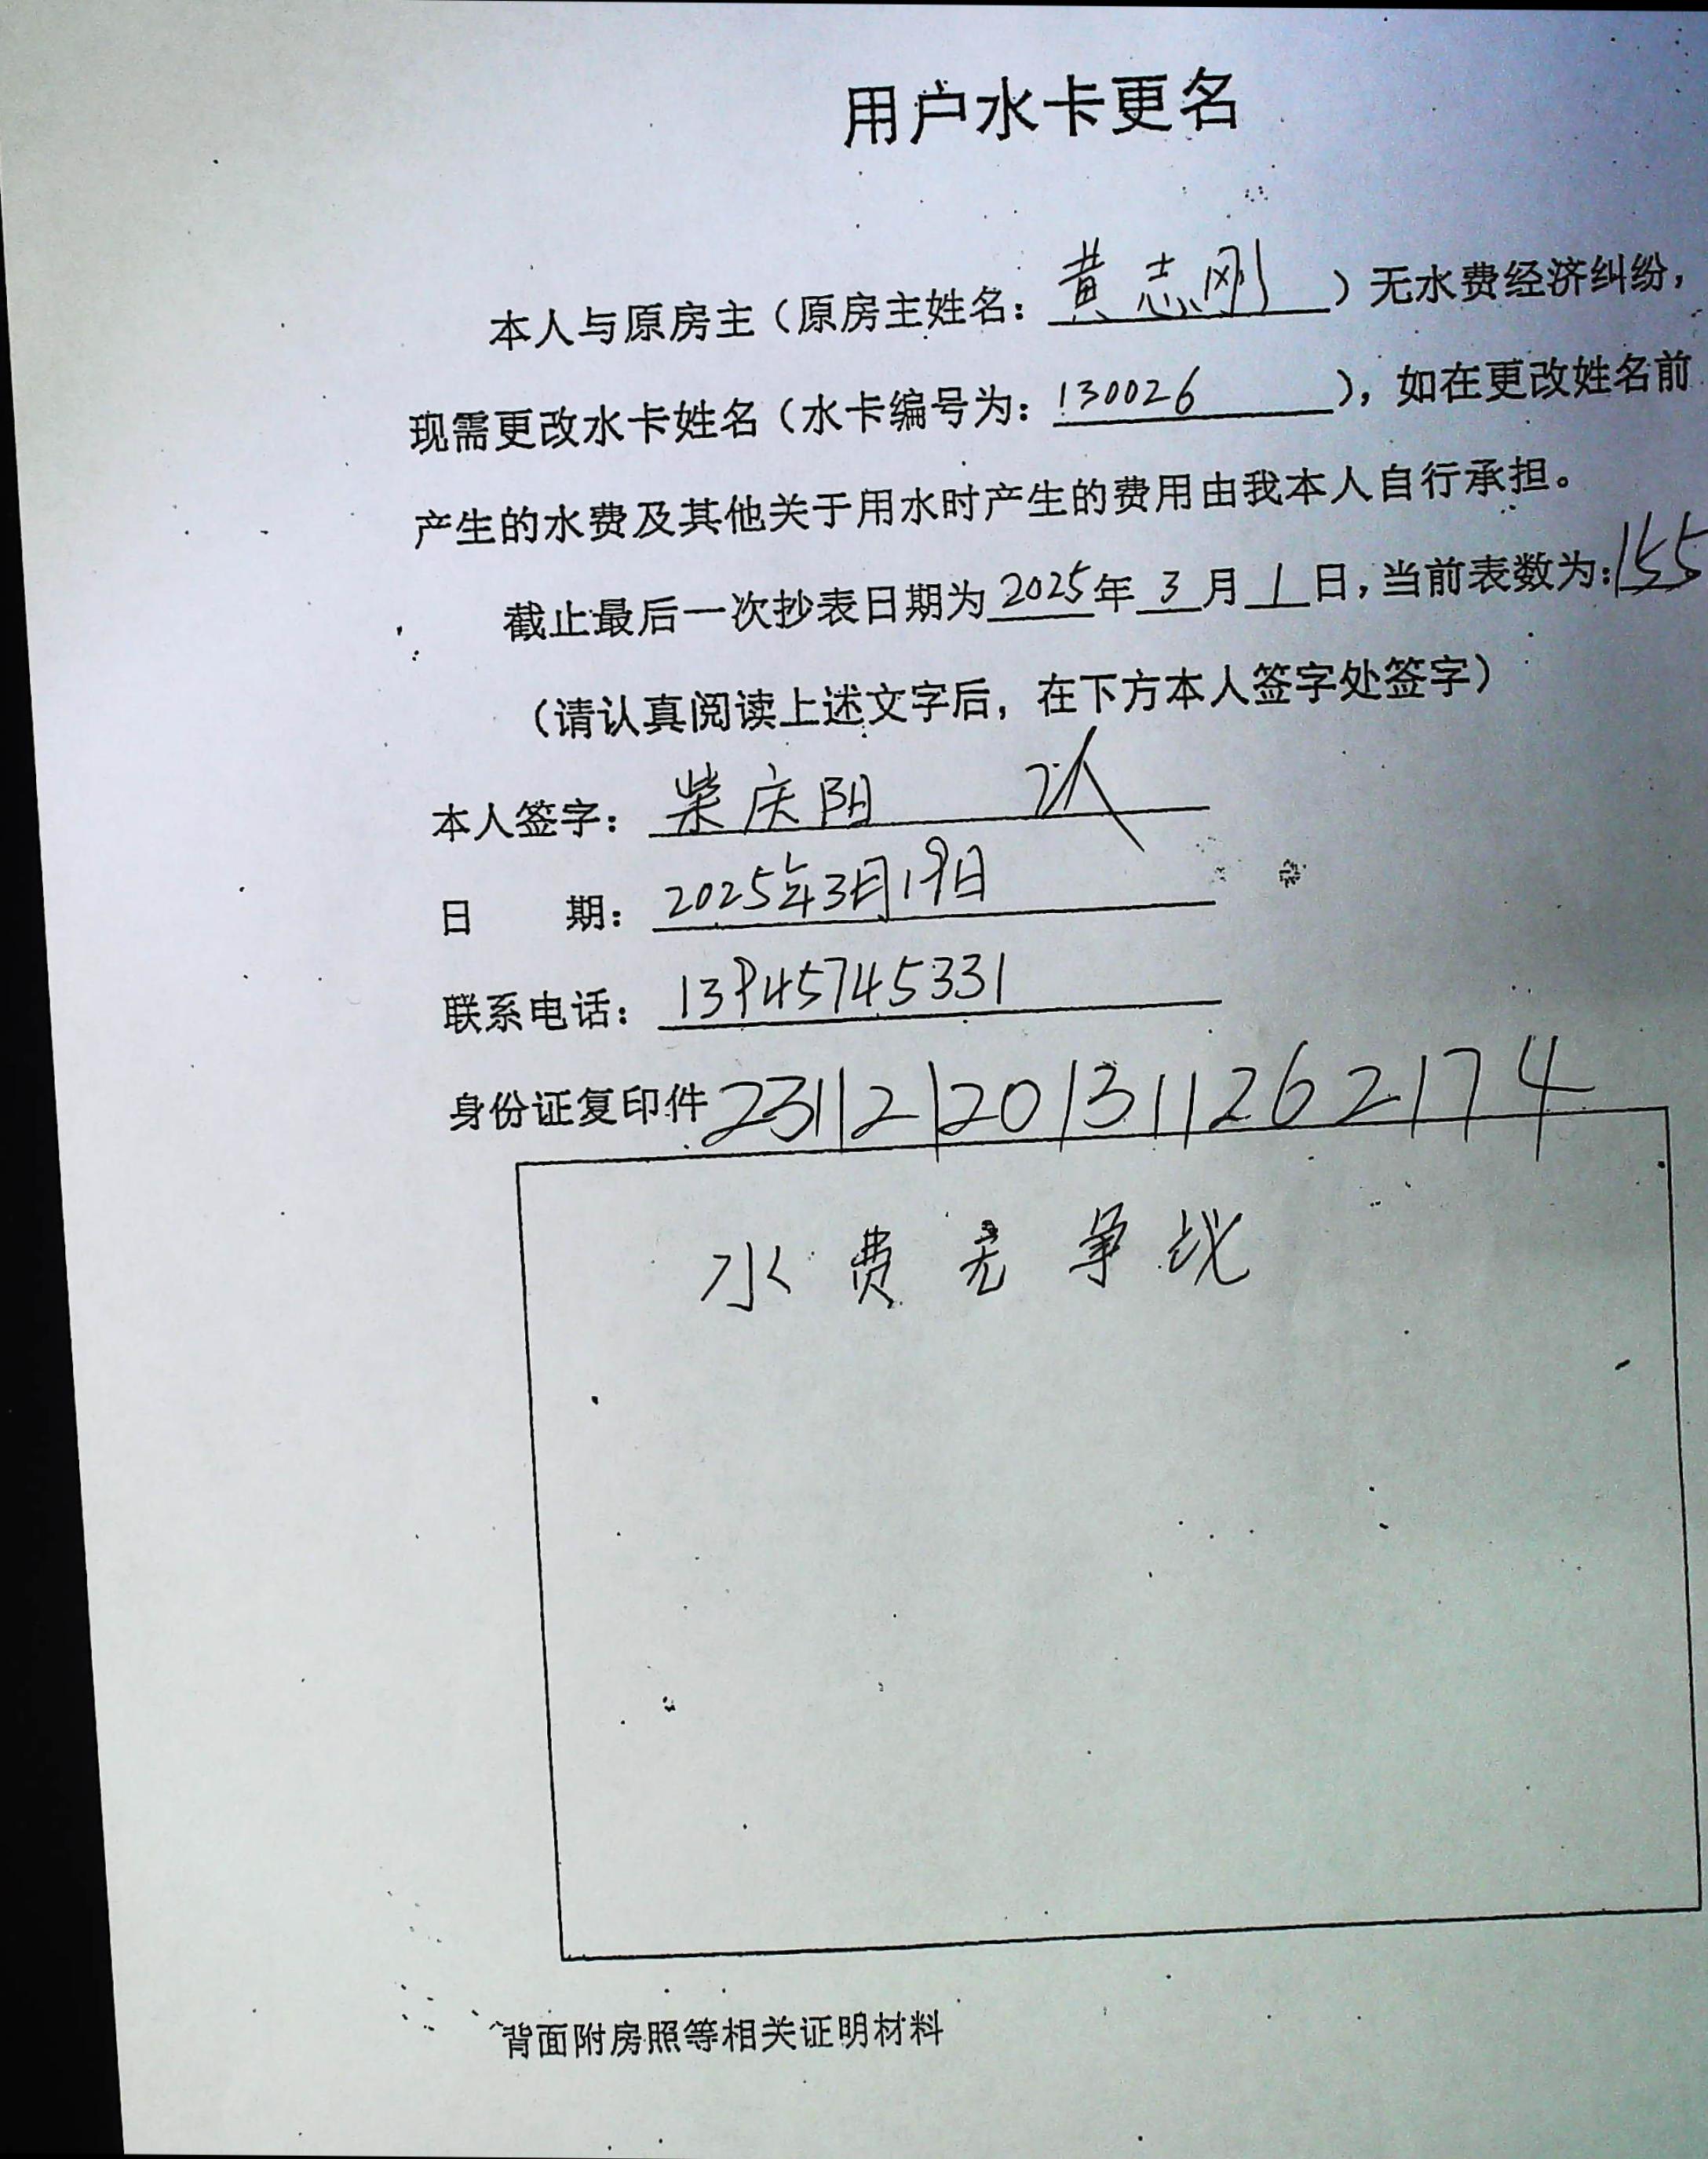 用户水卡更名
本人与原房主（原房主姓名：黄志刚）无水费经济纠纷，
现需更改水卡姓名（水卡编号为：130026），如在更改姓名前
产生的水费及其他关于用水时产生的费用由我本人自行承担。
截止最后一次抄表日期为2025年3月1日，当前表数为：155
（请认真阅读上述文字后，在下方本人签字处签字）
本人签字：柴庆阳
日 期：2025年3月19日
联系电话：13945745331
身份证复印件231121201311262174
水费无争议
背面附房照等相关证明材料